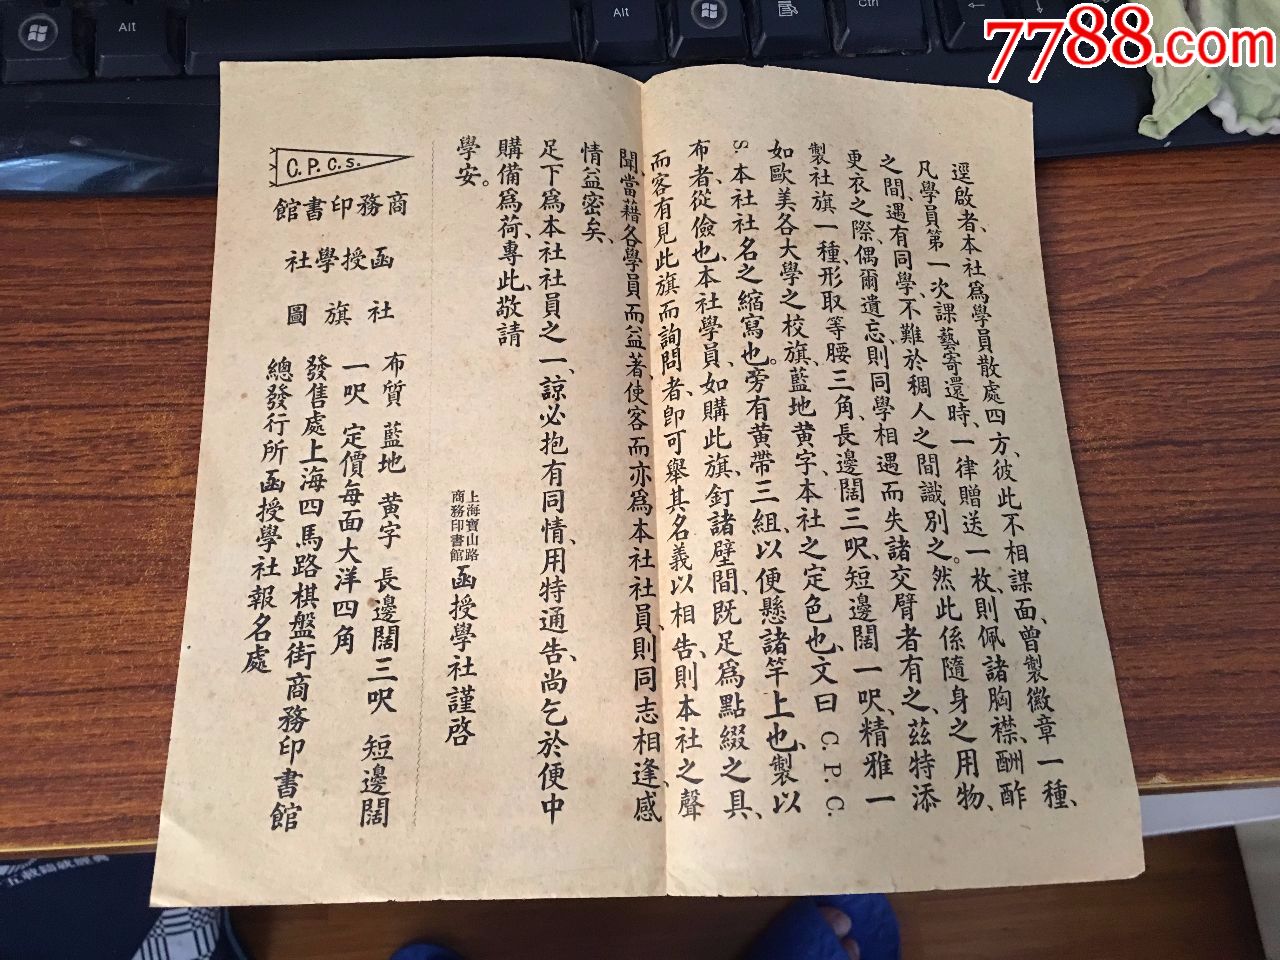 7788.com
Alt
Alt
Ctrl
逕啟者、本社爲學員散處四方、彼此不相謀面、曾製徽章一種、
凡學員第一次課藝寄還時、一律贈送一枚、則佩諸胸襟、酬酢
之間、遇有同學、不難於稠人之間識別之。然此係隨身之用物、
更衣之際、偶爾遺忘、則同學相遇而失諸交臂者有之、茲特添
製社旗一種、形取等腰三角、長邊闊三呎、短邊闊一呎、精雅一
如歐美各大學之校旗、藍地黃字、本社之定色也、文曰 C. P. C.
S. 本社社名之縮寫也。旁有黃帶三組、以便懸諸竿上也、製以
布者、從儉也、本社學員、如購此旗、釘諸壁間、既足爲點綴之具、
而客有見此旗而詢問者、卽可舉其名義以相告、則本社之聲
聞、當藉各學員而益著、使客而亦爲本社社員、則同志相逢、感
情益密矣、
足下爲本社社員之一、諒必抱有同情、用特通告、尚乞於便中
購備爲荷、專此、敬請
學安。
上海寶山路
商務印書館
函授學社謹啓
C. P. C. S.
商務印書館
函授學社
社旗圖
布質 藍地 黃字 長邊闊三呎 短邊闊
一呎 定價每面大洋四角
發售處上海四馬路棋盤街商務印書館
總發行所函授學社報名處